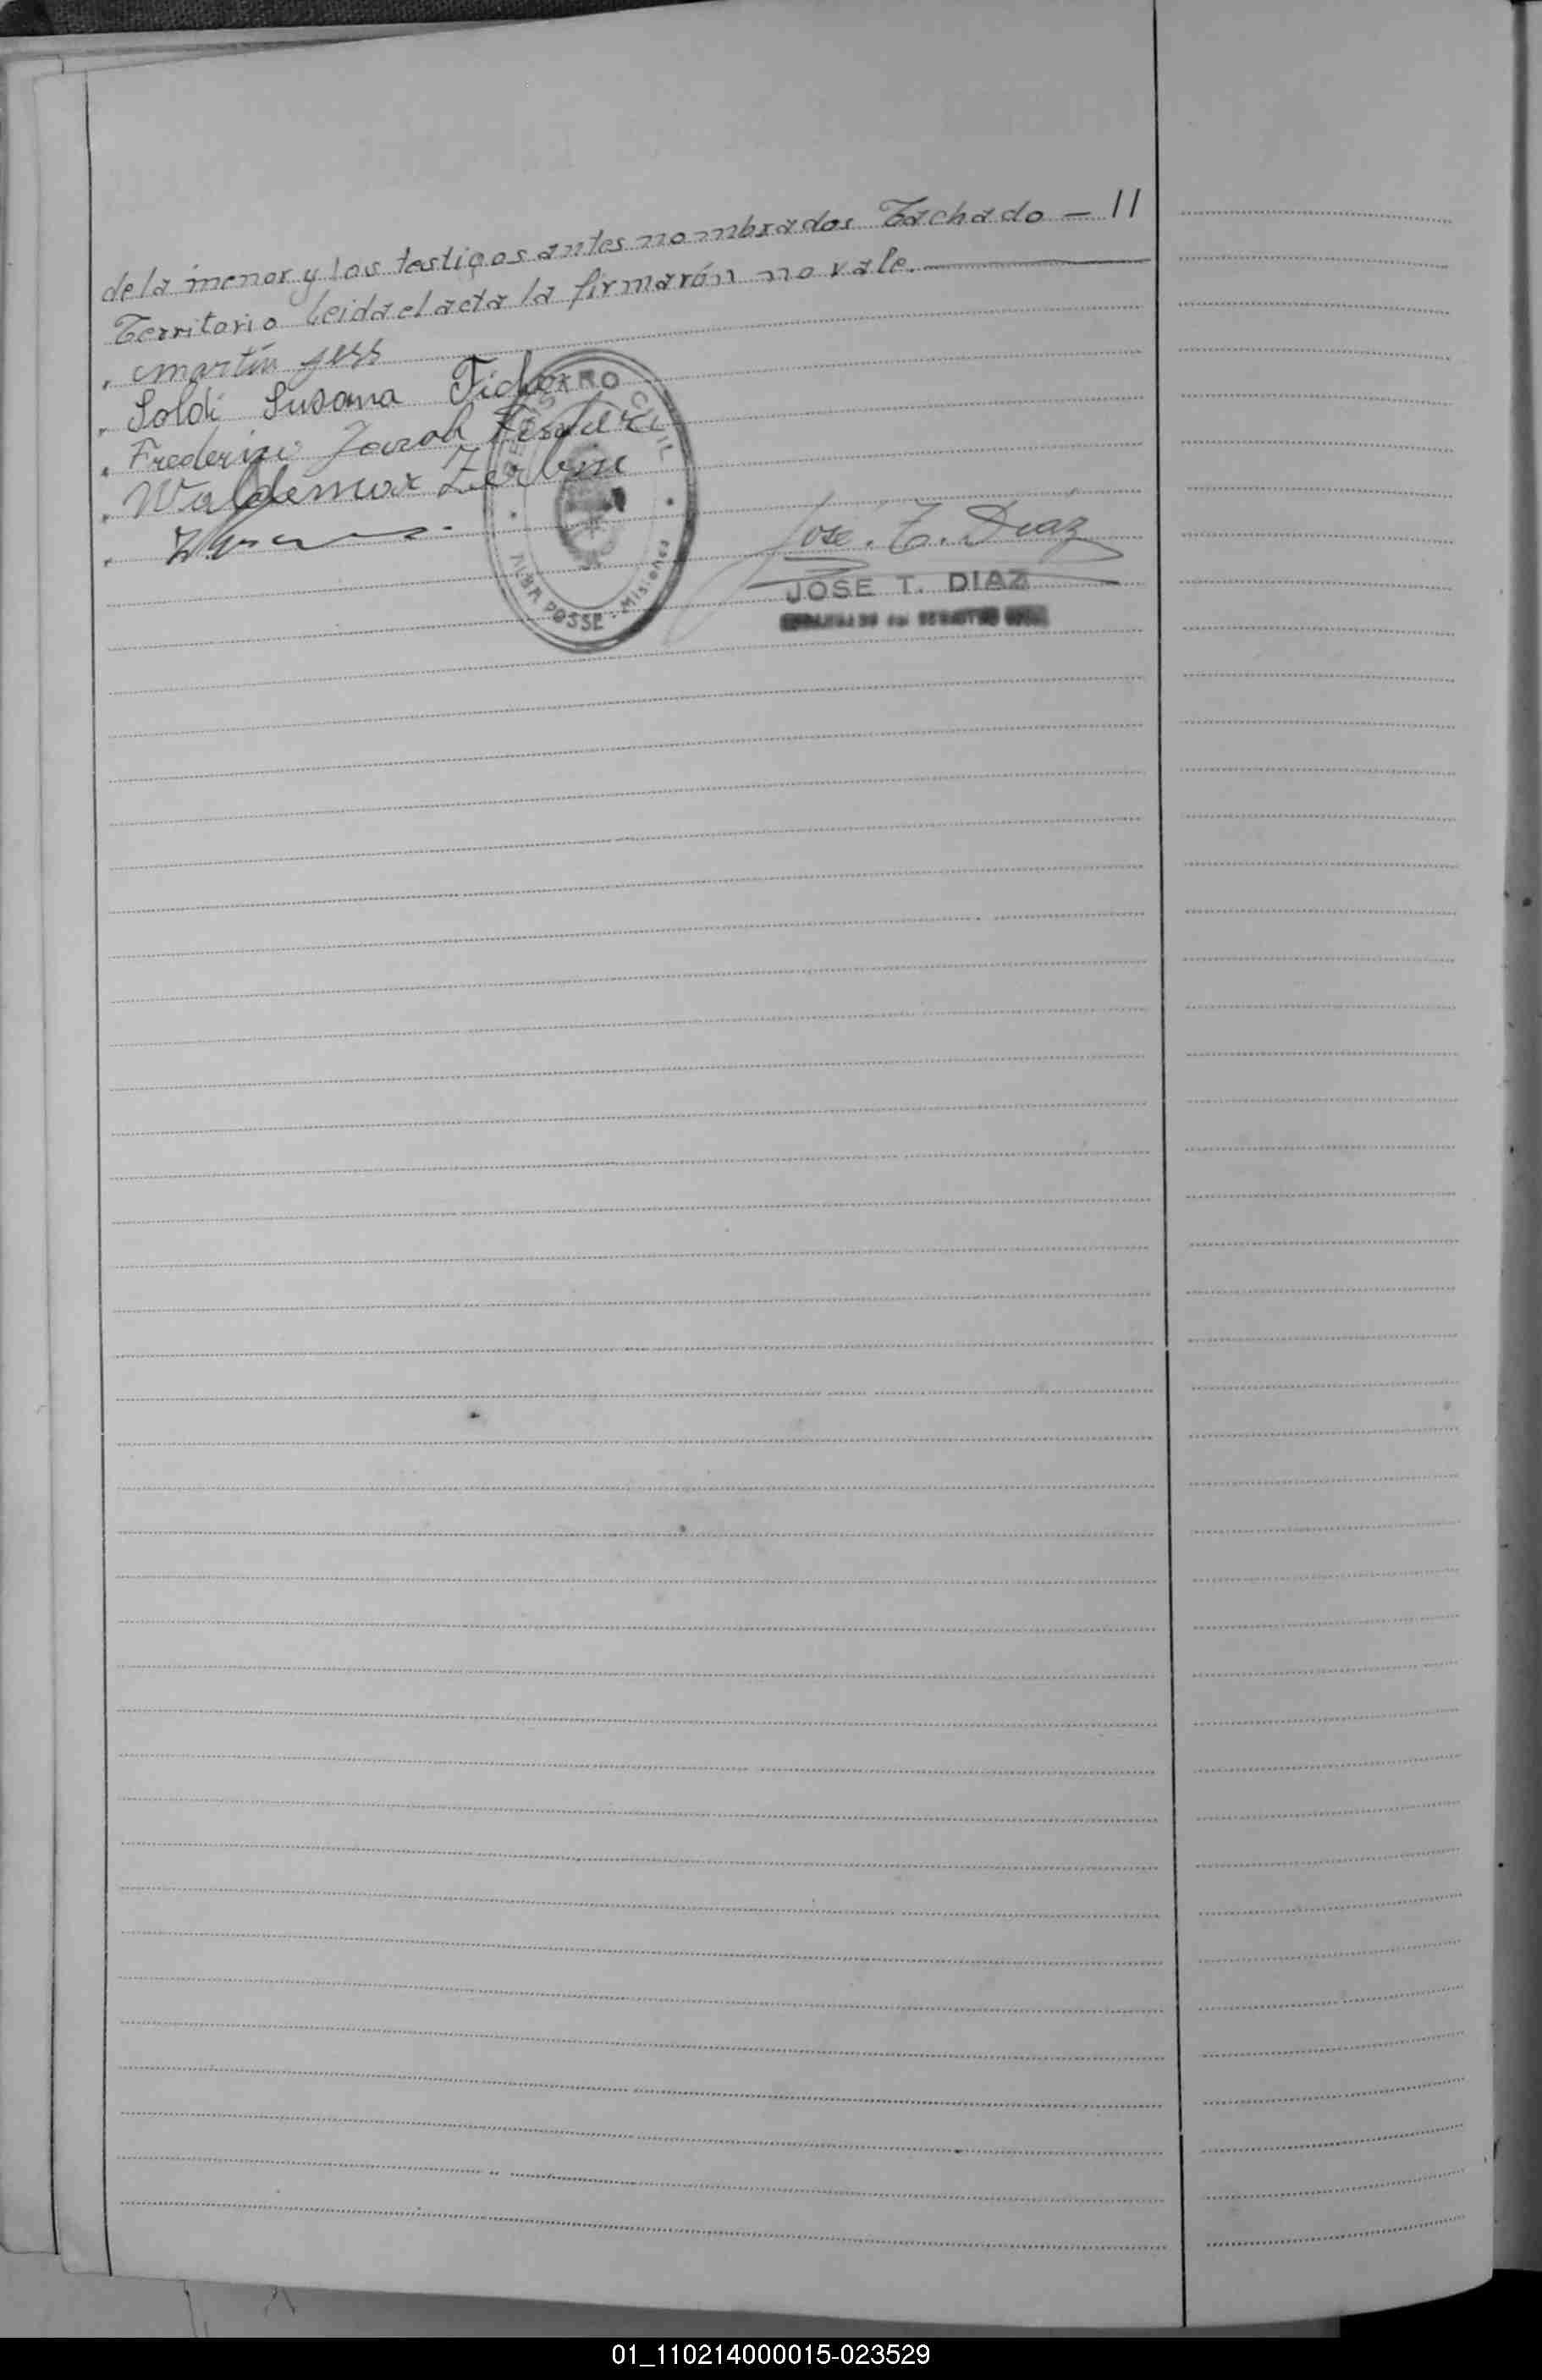 de la menor y los testigos antes nombrados Tachado — 11
Territorio leida el acta la firmarón no vale.
Martín Jess
Soldi Susana Ficher
Frederico
Waldemar Zerbin
REGISTRO CIVIL
ALBA POSSE - Misiones
Jose. T. Diaz
JOSE T. DIAZ
01_110214000015-023529